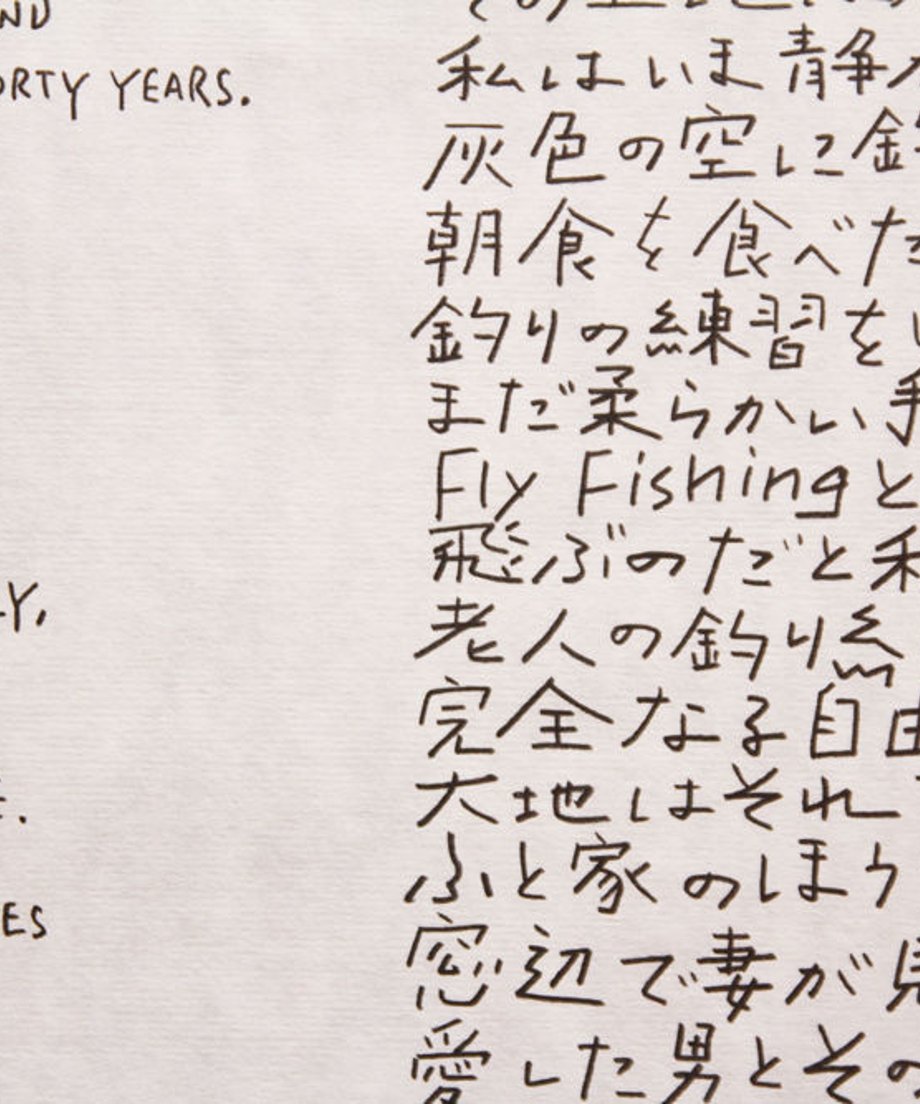 ND
ORTY YEARS.
Y,
.
ES
私はいま静か
灰色の空に釣
朝食を食べた
釣りの練習を
まだ柔らかい手
Fly Fishingと
飛ぶのだと私
老人の釣り糸
完全なる自由
大地はそれ
ふと家のほう
窓辺で妻が見
愛した男とその